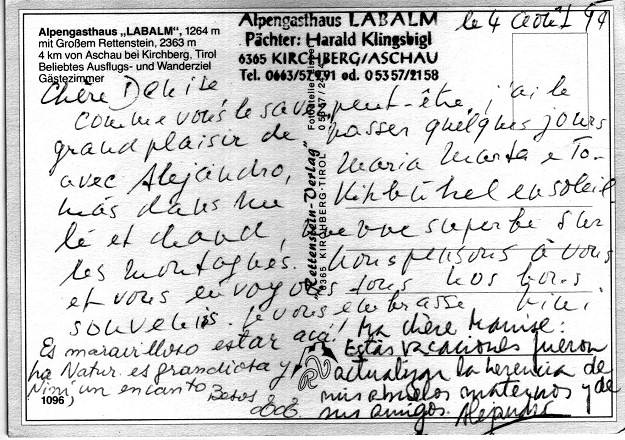 Alpengasthaus „LABALM", 1264 m
mit Großem Rettenstein, 2363 m
4 km von Aschau bei Kirchberg, Tirol
Beliebtes Ausflugs- und Wanderziel
Gästezimmer
Alpengasthaus LABALM
Pächter: Harald Klingsbigl
6365 KIRCHBERG/ASCHAU
Tel. 0663/57991 od. 05357/2158
le 4 août 94
Chère Denise
comme vous le savez peut-être, j'ai le
grand plaisir de passer quelques jours
avec Alejandro, Maria Marta e To-
más dans un Kitzbühel ensoleil
lé et chaud, une vue superbe sur
les montagnes. Nous pensons à vous
et vous envoyons tous nos bons
souvenirs. Je vous embrasse Nini
Es maravilloso estar acá!
la Natur. es grandiosa y
Nini un encanto
Besos
Ma chère Manise:
Estas vacaciones fueron
actualizar la herencia de
mis abuelos maternos y de
mis amigos. Alejandro
"Rettenstein-Verlag"
6365 KIRCHBERG-TIROL
1096